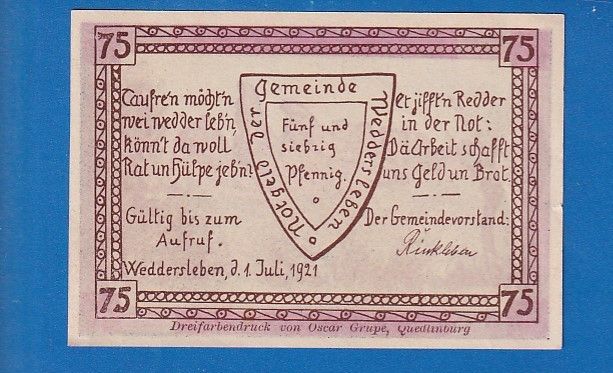 75 75
Caufre'n möcht'n
wei wedder leb'n,
könn't da woll
Rat un Hülpe jeb'n?
Gültig bis zum
Aufruf.
Weddersleben, d. 1. Juli, 1921
Notgeld der Gemeinde Weddersleben
Fünf und
siebzig
Pfennig.
Et jifft'n Redder
in der Not:
Dä Arbeit schafft
uns Geld un Brot.
Der Gemeindevorstand:
Rinkleben
75 75
Dreifarbendruck von Oscar Grupe, Quedlinburg